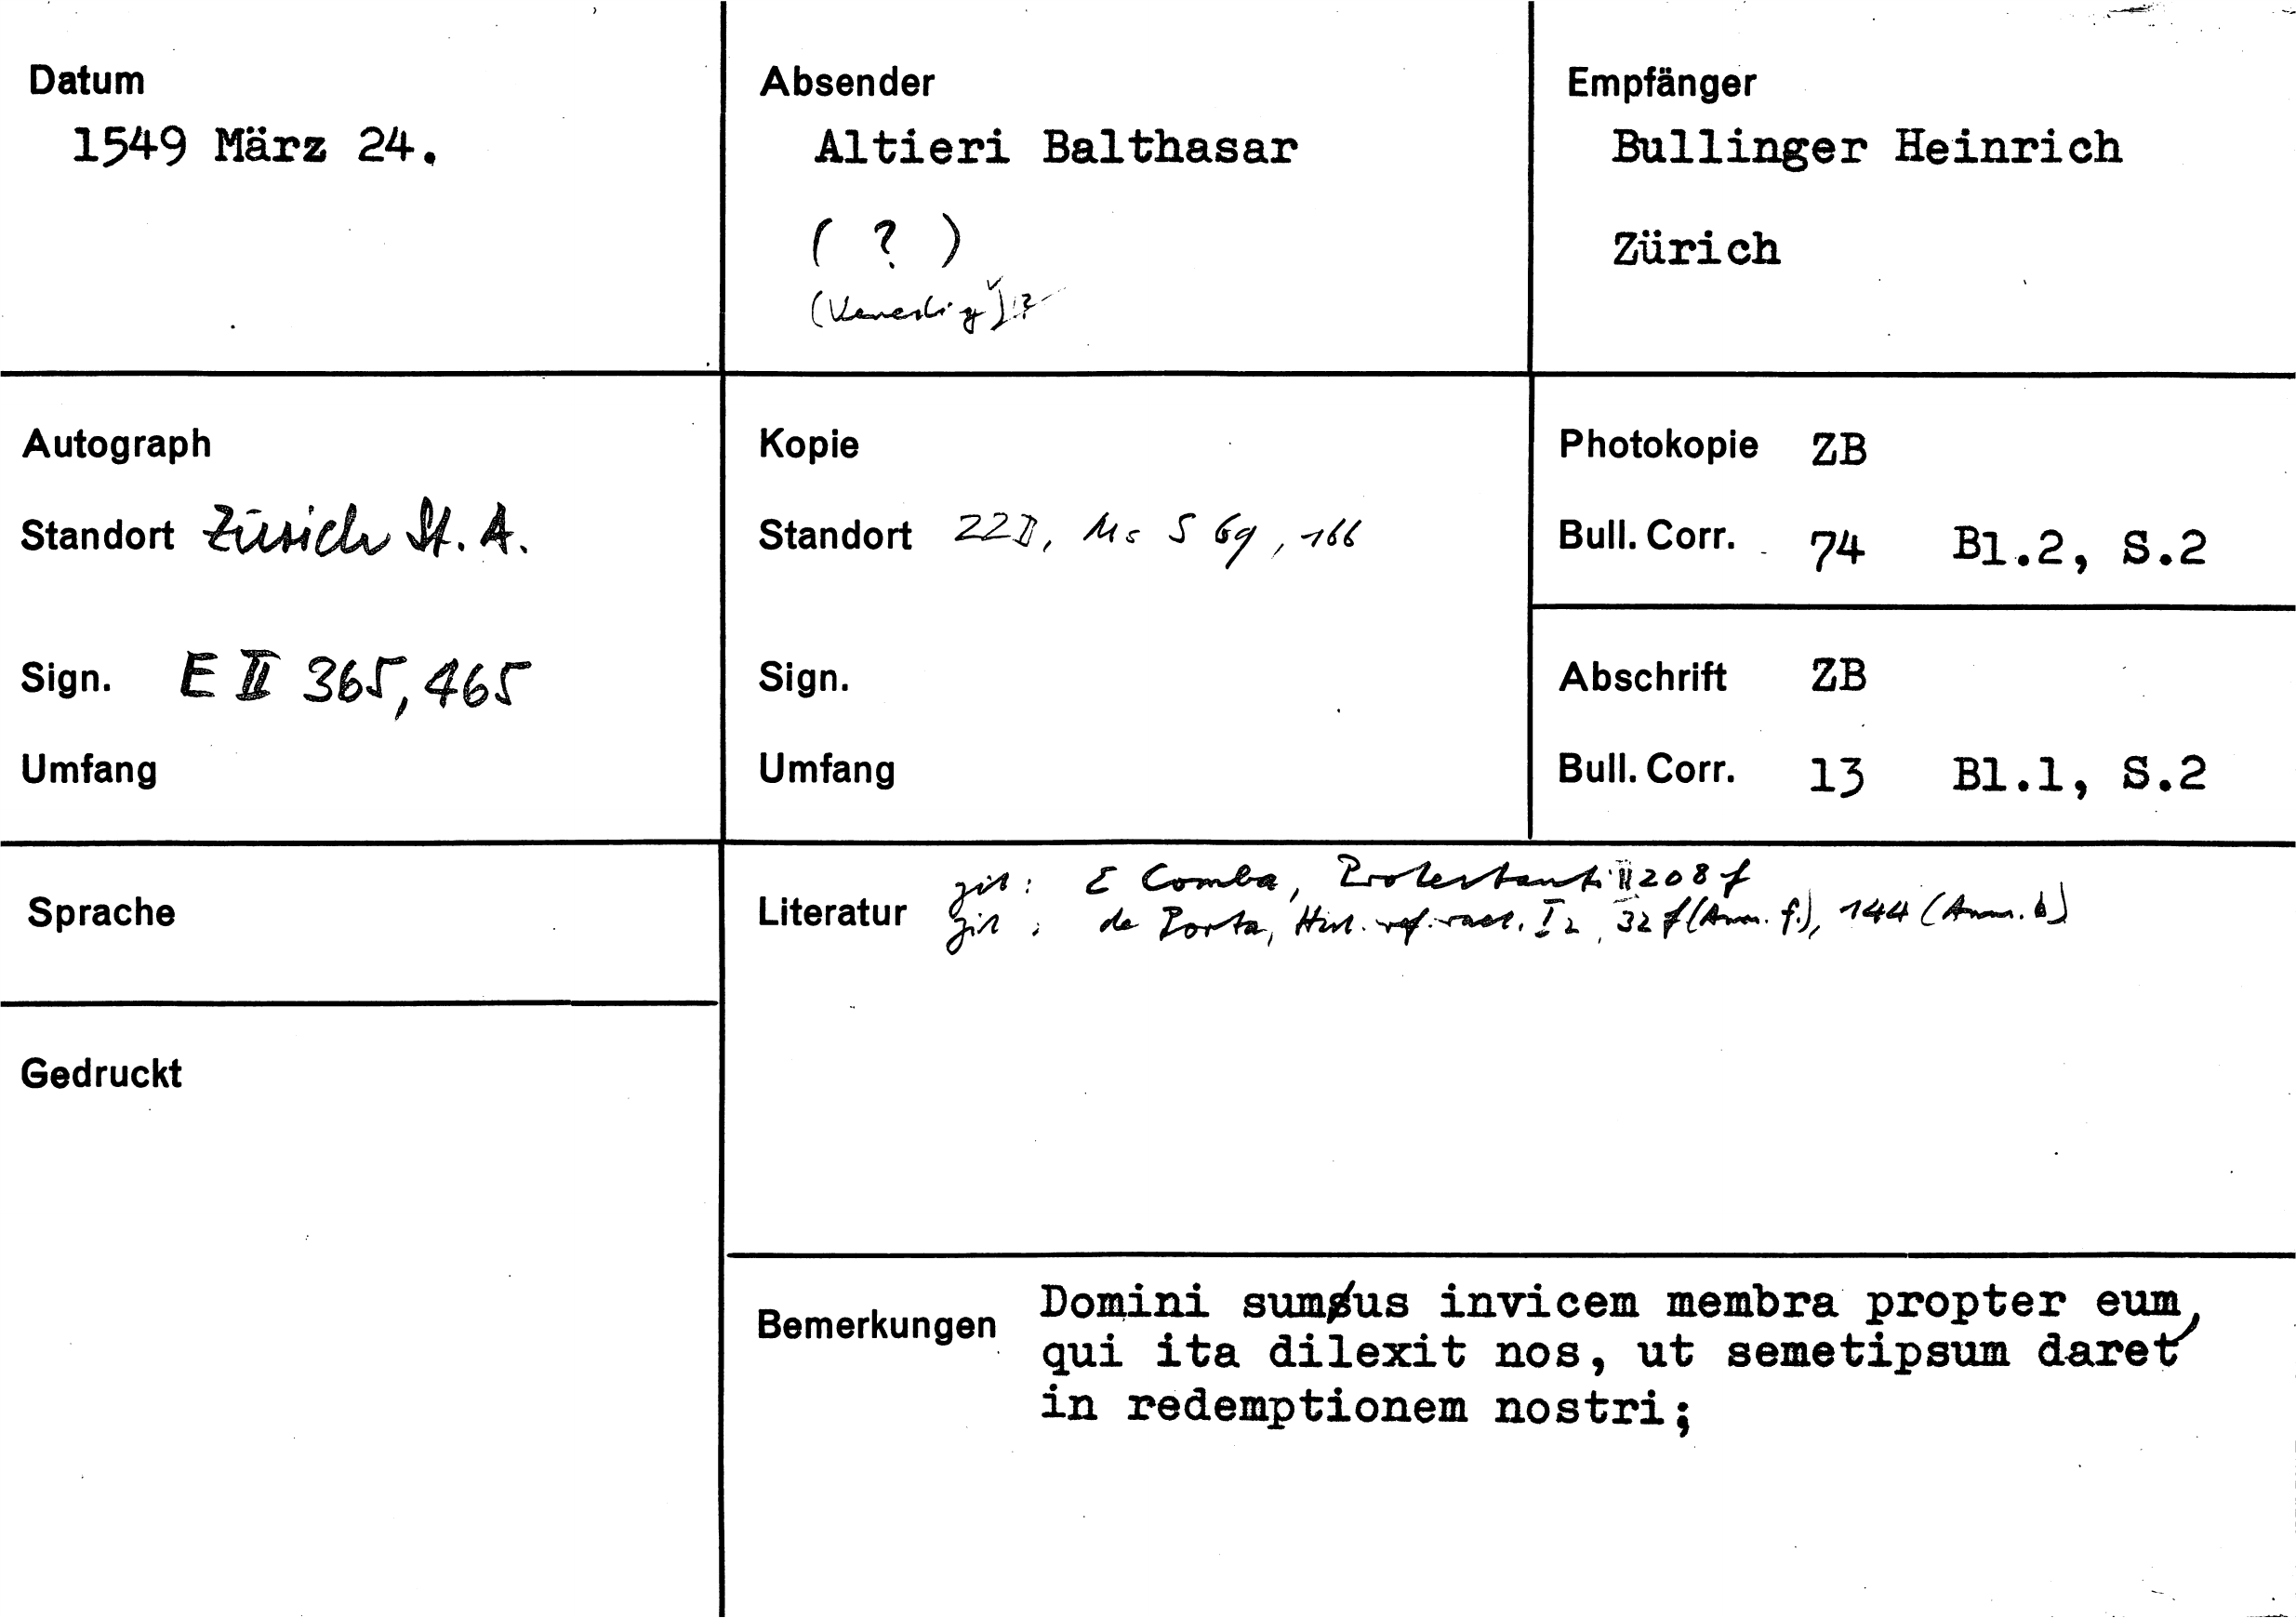 Datum
1549 März 24.
Absender
Altieri Balthasar
( ? )
(Venedig)?
Empfänger
Bullinger Heinrich
Zürich
Autograph
Standort Zürich St. A.
Sign. E II 365, 465
Umfang
Kopie
Standort ZZB, Ms S 69, 166
Sign.
Umfang
Photokopie ZB
Bull. Corr. 74 Bl.2, S.2
Abschrift ZB
Bull. Corr. 13 Bl.1, S.2
Sprache
Gedruckt
Literatur
zit: E Comba, Protestanti II 208 f
zit: de Porta, Hist. ref. raet. I 2, 32 f (Anm. f.), 144 (Anm. b)
Bemerkungen
Domini sumus invicem membra propter eum,
qui ita dilexit nos, ut semetipsum daret
in redemptionem nostri;